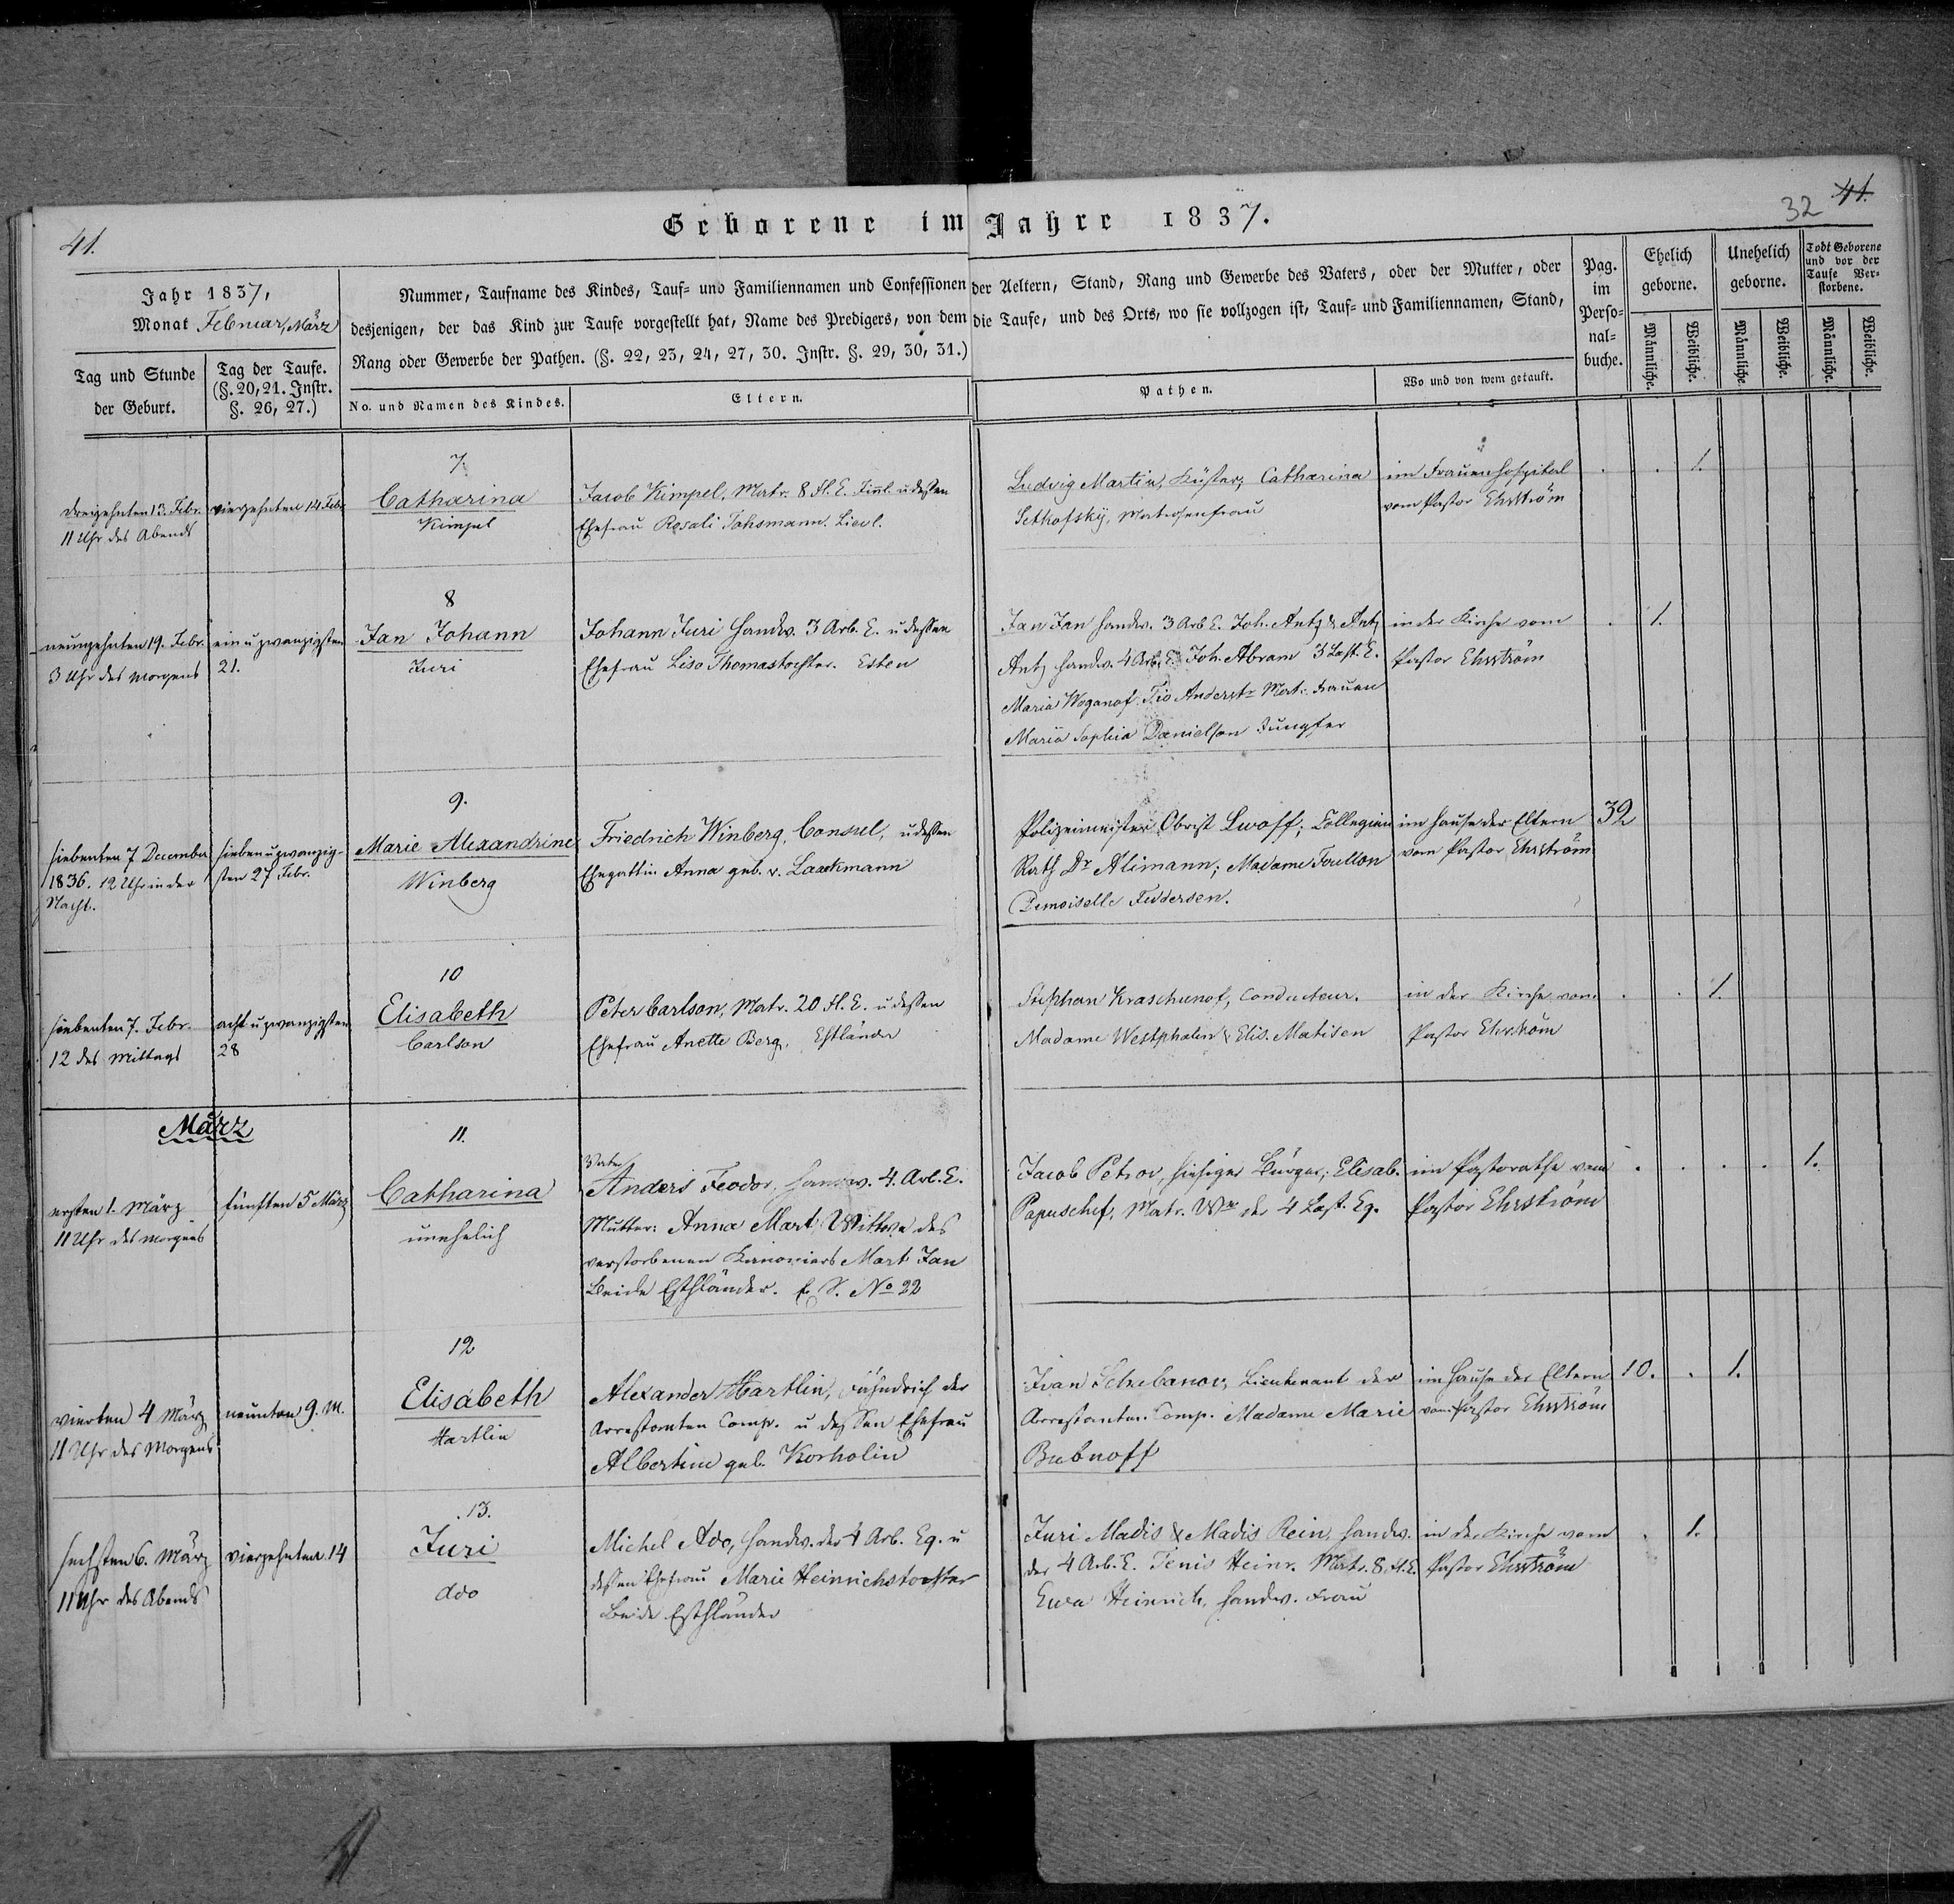 Geborene im Jahre 1837.
41.
32 41.
Jahr 1837,
Monat Februar, März
Tag und Stunde
der Geburt.
Tag der Taufe.
(§. 20, 21. Instr.
§. 26, 27.)
Nummer, Taufname des Kindes, Tauf- und Familiennamen und Confessionen der Aeltern, Stand, Rang und Gewerbe des Vaters, oder der Mutter, oder
desjenigen, der das Kind zur Taufe vorgestellt hat, Name des Predigers, von dem die Taufe, und des Orts, wo sie vollzogen ist, Tauf- und Familiennamen, Stand,
Rang oder Gewerbe der Pathen. (§. 22, 23, 24, 27, 30. Instr. §. 29, 30, 31.)
No. und Namen des Kindes.
Eltern.
Pathen.
Wo und von wem getauft.
Pag.
im
Perso-
nal-
buche.
Ehelich
geborne.
Unehelich
geborne.
Todt Geborene
und vor der
Taufe Ver-
storbene.
Männliche.
Weibliche.
Männliche.
Weibliche.
Männliche.
Weibliche.
dreizehnten 13. Febr.
11 Uhr des Abends
vierzehnten 14 Febr.
7.
Catharina
Kimpel
Jacob Kimpel, Matr. 8 Fl. E. Finnl. u dessen
Ehefrau Rosali Tohsmann. Lievl.
Ludvig Martin, Küster; Catharina
Setkofsky, Matrosenfrau
im Frauenhospital
vom Pastor Ehrström
1.
neunzehnten 19. Febr.
3 Uhr des Morgens
ein u zwanzigsten
21.
8
Jan Johann
Juri
Johann Juri Handw. 3 Arb. E. u dessen
Ehefrau Liso Thomastochter. Esten
Jan Jan Handw. 3 Arb E. Joh. Antz & Antz
Antz Handw. 4 Arb. E. Joh. Abram 3 Last. E.
Maria Woganof. Tio Anderstr Matr. Frauen
Maria Sophia Danielson Jungfer
in der Kirche vom
Pastor Ehrström
1.
siebenten 7 December
1836. 12 Uhr in der
Nacht.
sieben u zwanzig-
sten 27 Febr.
9.
Marie Alexandrine
Winberg
Friedrich Winberg, Consul, u dessen
Ehegattin Anna geb. v. Laackmann
Polizeimeister Obrist Lwoff; Collegien
Rath Dr Alimann; Madame Foullon
Demoiselle Feddersen.
im Hause der Eltern
vom Pastor Ehrström
39
siebenten 7. Febr.
12 des Mittags
acht u zwanzigsten
28
10
Elisabeth
Carlson
Peter Carlson, Matr. 20 Fl. E. u dessen
Ehefrau Anette Berg. Esthländer
Stephan Kraschunof, Conducteur.
Madame Westphalen & Elis. Matisen
in der Kirche vom
Pastor Ehrström
1.
März
ersten 1. März
11 Uhr des Morgens
fünften 5 März
11.
Catharina
unehelich
Vater
Anders Feodor, Handw. 4. Arb. E.
Mutter: Anna Mart Wittwe des
verstorbenen Kanoniers Mart Jan
Beide Esthländer. No 22
Jacob Petrov, hiesiger Bürger; Elisab.
Papuschef, Matr. Ww der 4 Last. Eq.
im Pastorathe vom
Pastor Ehrström
1.
vierten 4 März
11 Uhr des Morgens
neunten 9. M.
12
Elisabeth
Hartlin
Alexander Hartlin, Fähndrich der
Arrestanten Comp. u dessen Ehefrau
Albertine geb. Korholin
Ivan Schebanov, Lieutenant der
Arrestanten Comp. Madame Marie
Bubnoff
im Hause der Eltern
vom Pastor Ehrström
10.
1.
sechsten 6. März
11 Uhr des Abends
vierzehnten 14
13.
Juri
Ado
Michel Ado, Handw. der 4 Arb. Eq. u
dessen Ehefrau Marie Heinrichstochter
Beide Esthländer
Juri Madis & Madis Rein, Handw.
der 4 Arb. E. Tenis Heinr. Matr. 8. Fl. E.
Ewa Heinrich, Handw. Frau
in der Kirche vom
Pastor Ehrström
1.